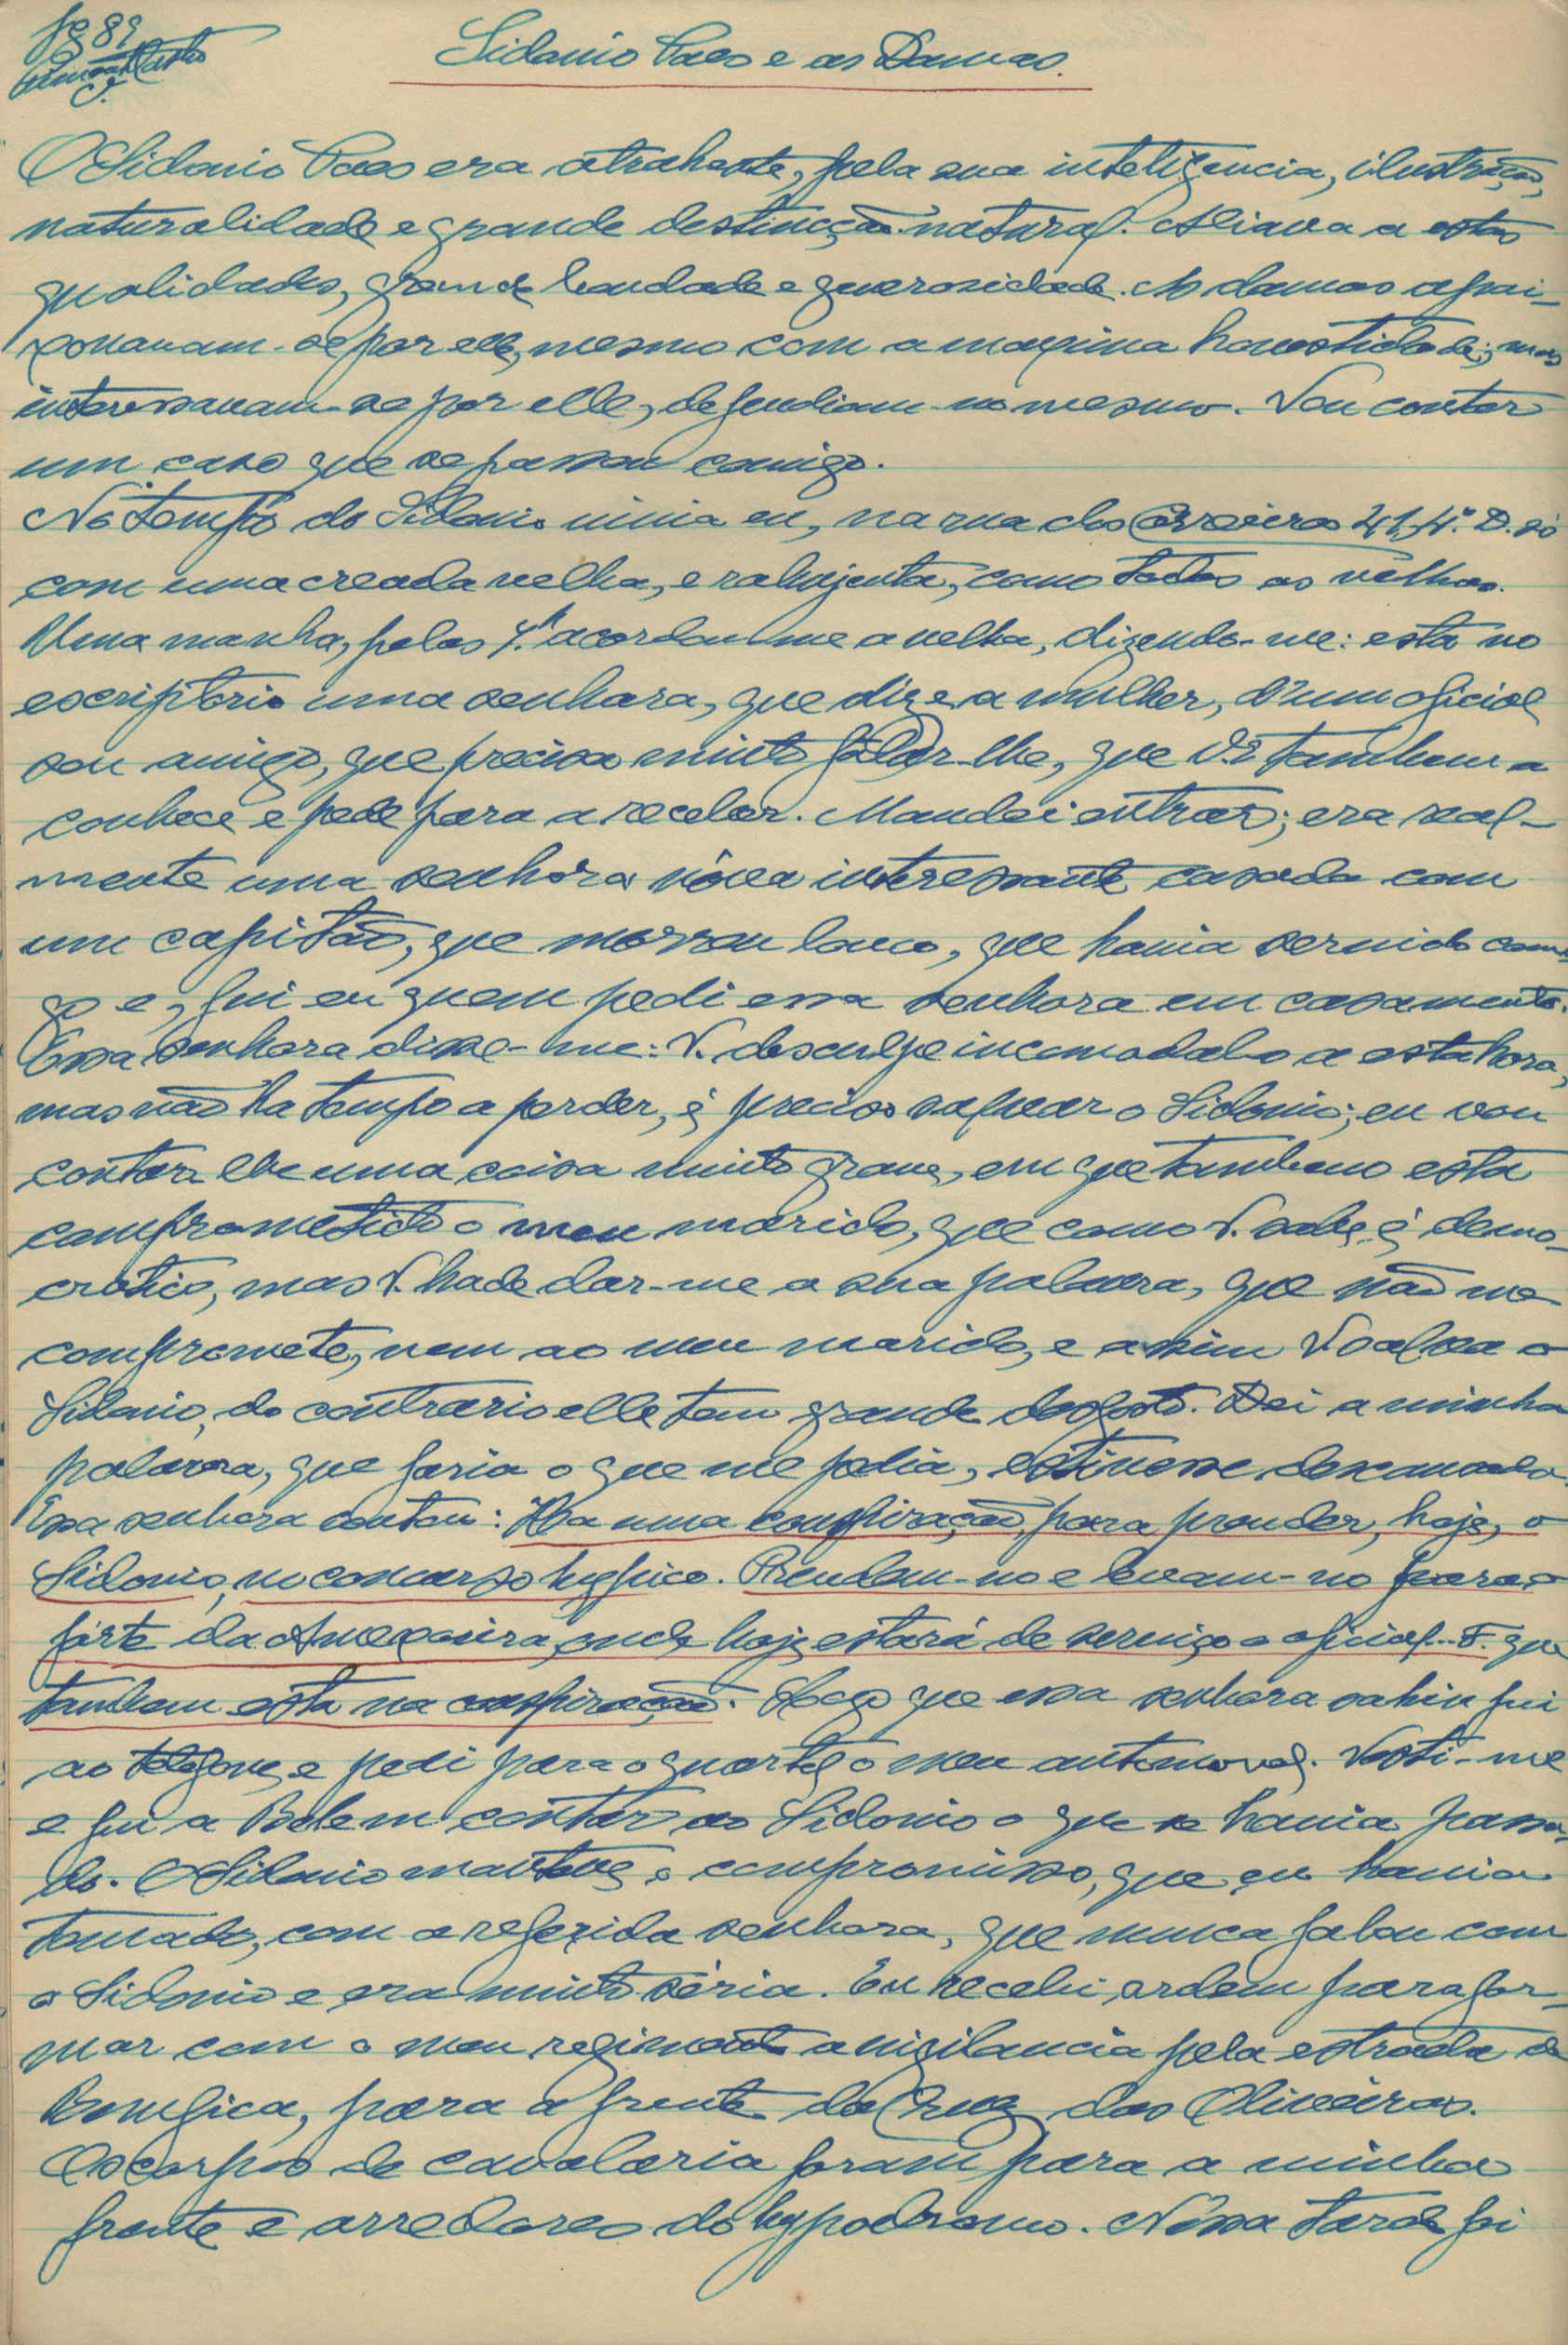 fg 89
Sidonio Paes e as Damas.
O Sidonio Paes era atrahente, pela sua inteligencia, ilustração,
naturalidade e grande destincção natural. Aliava a estas
qualidades, grande bondade e generosidade. As damas apai-
xonavam-se por elle, mesmo com a maxima honestidade; mas
interessavam-se por elle, defendiam-no mesmo. Vou contar
um caso que se passou comigo.
No tempo do Sidonio vivia eu, na rua dos Correeiros 41, 4º. D. só
com uma creada velha, e rabujenta, como todas as velhas.
Uma manha, pelas 7h acordou-me a velha, dizendo-me: está no
escriptorio uma senhora, que diz ser a mulher, d'um oficial
seu amigo, que precisa muito falar-lhe, que V.ª tambem a
conhece e pede para a receber. Mandei entrar; era real-
mente uma senhora nóva interessante casada com
um capitão, que morreu louco, que havia servido comi-
go e, fui eu quem pedi essa senhora em casamento.
Essa senhora disse-me: V. desculpe incomodal-o a esta hora,
mas não ha tempo a perder, é preciso salvar o Sidonio; eu vou
contar lhe uma coisa muito grave, em que tambem esta
comprometido o meu marido, que como V. sabe, é demo-
cratico, mas V. hade dar-me a sua palavra, que não me
compromete, nem ao meu marido, e assim V salva o
Sidonio, do contrario elle tem grande desgosto. Dei a minha
palavra, que faria o que me pedia, estivesse descansada.
Essa senhora contou: Ha uma conspiração, para prender, hoje, o
Sidonio, no concurso hyppico. Prendem-no e levam-no para o
fórte da Ameixoeira, onde hoje estará de serviço o oficial... F. que
tambem esta na conspiração. Logo que essa senhora sahiu fui
ao telefone, e pedi para o quartel o meu automovel. Vesti-me
e fui a Belem contar ao Sidonio o que se havia passa-
do. O Sidonio manteve o compromisso, que eu havia
tomado, com a referida senhora, que nunca falou com
o Sidonio e era muito séria. Eu recebi ordem para for-
mar com o meu regimento a vigilancia pela estrada de
Bemfica, para a frente da Cruz das Oliveiras.
Os corpos de cavalaria foram para a minha
frente e arredores do hypodromo. N'essa tarde foi